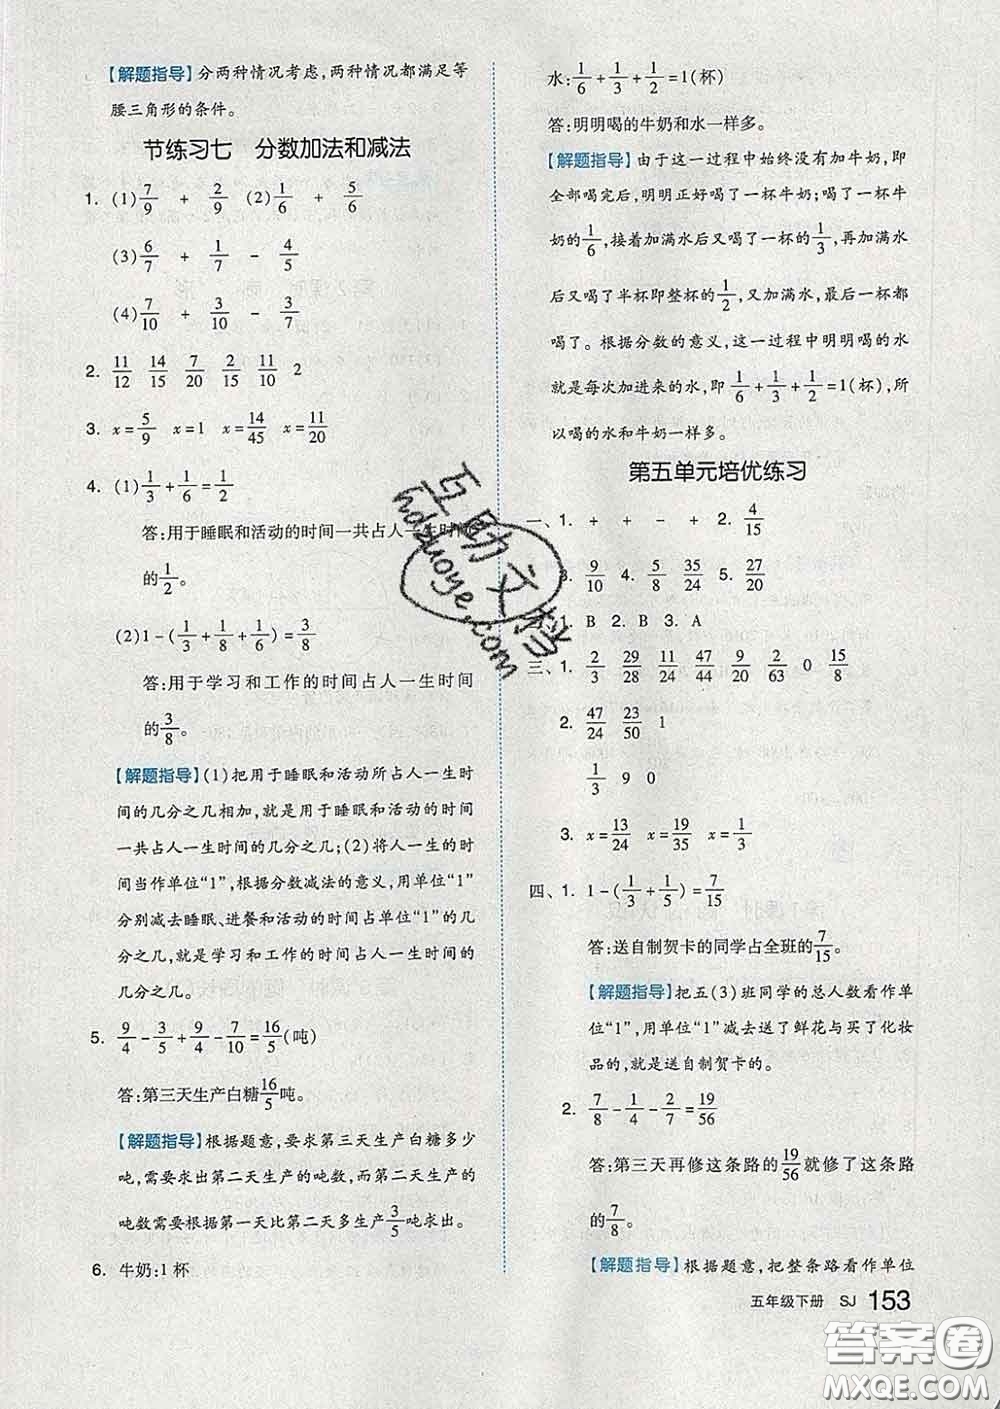 【解题指导】分两种情况考虑,两种情况都满足等
腰三角形的条件。
节练习七 分数加法和减法
1. (1) 7/9 + 2/9 (2) 1/6 + 5/6
(3) 6/7 + 1/7 - 4/5
(4) 7/10 + 3/10 - 3/7
2. 11/12 14/15 7/20 2/15 11/10 2
3. x=5/9 x=1 x=14/45 x=11/20
4. (1) 1/3+1/6=1/2
答:用于睡眠和活动的时间一共占人一生时间
的1/2。
(2) 1-(1/3+1/8+1/6)=3/8
答:用于学习和工作的时间占人一生时间
的3/8。
【解题指导】(1)把用于睡眠和活动所占人一生时
间的几分之几相加,就是用于睡眠和活动的时间
一共占人一生时间的几分之几;(2)将人一生的时
间当作单位“1”,根据分数减法的意义,用单位“1”
分别减去睡眠、进餐和活动的时间占单位“1”的几
分之几,就是学习和工作的时间占人一生时间的
几分之几。
5. 9/4-3/5+9/4-7/10=16/5(吨)
答:第三天生产白糖16/5吨。
【解题指导】根据题意,要求第三天生产白糖多少
吨,需要求出第二天生产的吨数,而第二天生产的
吨数需要根据第一天比第二天多生产3/5吨求出。
6. 牛奶:1杯
水:1/6+1/3+1/2=1(杯)
答:明明喝的牛奶和水一样多。
【解题指导】由于这一过程中始终没有加牛奶,即
全部喝完后,明明正好喝了一杯牛奶;喝了一杯牛
奶的1/6,接着加满水后又喝了一杯的1/3,再加满水
后又喝了半杯即整杯的1/2,又加满水,最后一杯都
喝了。根据分数的意义,这一过程中明明喝的水
就是每次加进来的水,即1/6+1/3+1/2=1(杯),所
以喝的水和牛奶一样多。
第五单元培优练习
一、1. + + - + 2. 4/15
3. 9/10 4. 5/8 35/24 5. 27/20
二、1. B 2. B 3. A
三、1. 2/3 29/28 11/24 47/44 9/20 2/63 0 15/8
2. 47/24 23/50 1
1/3 9 0
3. x=13/24 x=19/35 x=1/3
四、1. 1-(1/3+1/5)=7/15
答:送自制贺卡的同学占全班的7/15。
【解题指导】把五(3)班同学的总人数看作单
位“1”,用单位“1”减去送了鲜花与买了化妆
品的,就是送自制贺卡的。
2. 7/8-1/4-2/7=19/56
答:第三天再修这条路的19/56就修了这条路
的7/8。
【解题指导】根据题意,把整条路看作单位
五年级下册 SJ 153
互助文档
hdzuoye.com
答案圈
MXQE.COM